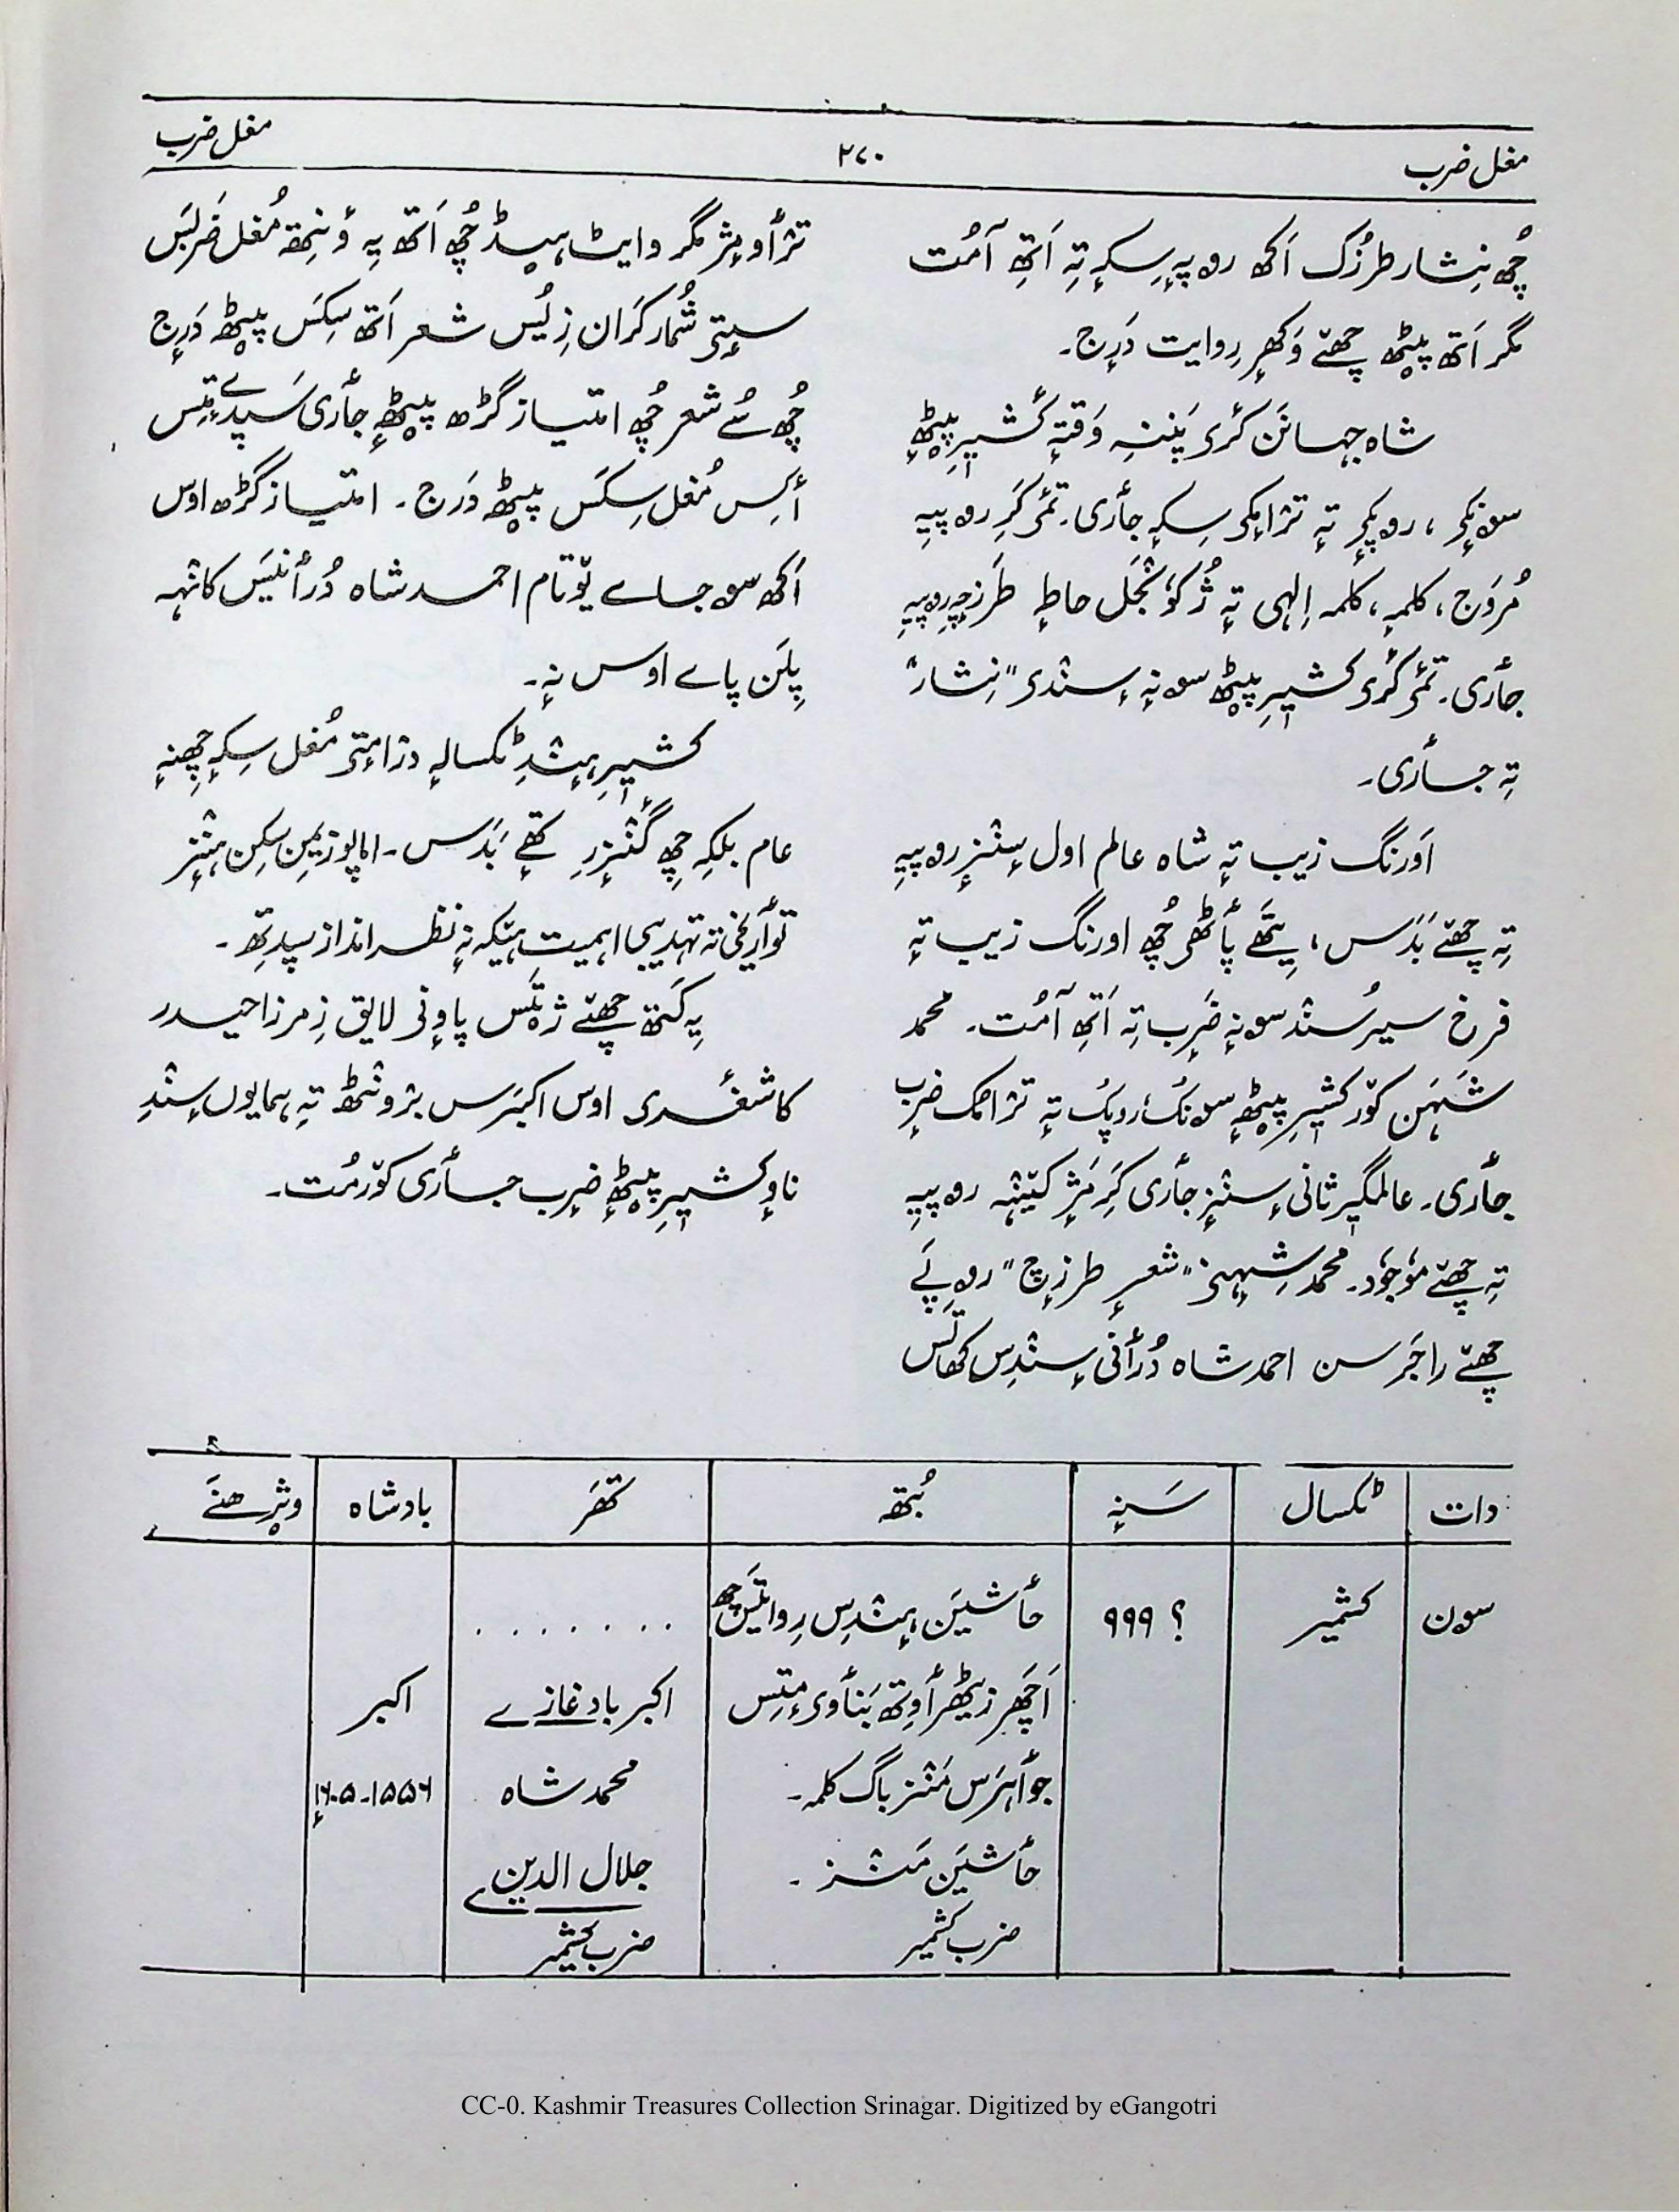 مغل ضرب
۲۷۰
مغل ضرب
چُھ نِشار طرزُک اَکھ روپیہِ سِکہٕ تہِ اَتھِ آمُت
مگر اَتھ پیٚٹھ چھےٚ وَکھٕرِ روایت دَرٕج۔
شاہ جہانَن کٔری پَننہِ وَقتہٕ کٔشیٖرِ پیٚٹھٕ
سونٕکۍ، روپٕکۍ تہٕ ترٛامٕکۍ سِکہٕ جأری۔ تٔمۍ کَرِ روپییہِ
مُروَج، کلمہٕ، کلمہ اِلٰہی تہٕ ژُکوٗنجَل حاطہٕ طَرزٕچہِ روپییہِ
جأری۔ تٔمۍ کٔری کشیٖرِ پیٚٹھ سونہٕ سٕندۍ "نِشار"
تہِ جأری۔
اَورنگ زیب تہٕ شاہ عالم اول سٕنزٕ روپییہِ
تہِ چھےٚ بَدَس، یِتھَے پأٹھۍ چُھ اورنگ زیب تہٕ
فرخ سیر سُند سونہٕ ضَرب تہِ اَتھِ آمُت۔ محمد
شَہَن کوٚر کشیٖرِ پیٚٹھٕ سونُک، روپُک تہٕ ترٛامُک ضرب
جأری۔ عالمگیر ثانی سٕنزٕ جأری کَرِمَژٕ کیٚنژہہ روپییہِ
تہِ چھےٚ موٗجوٗد۔ محمد شہنہِ "شعرٕ طرزٕچ" روپَے
چھےٚ راجَرسن احمد شاہ دُرأنی سٕندِس کھاتَس
ترٛأومٕژ مگر وایٹ ہیڈ چُھ اَتھ یہِ وٕنِتھ مُغل ضَربَس
سیٖتۍ شُمار کَران زِ یُس شعر اَتھ سِکَس پیٚٹھ دَرٕج
چُھ سُے شعر چُھ امتیاز گڑھ پیٚٹھٕ جأری سَپدیمٕتِس
أکِس مُغل سِکَس پیٚٹھ دَرٕج۔ امتیاز گڑھ اوس
اَکھ سوٚ جاے یوٚتام احمد شاہ دُرأنیَس کانٛہہ
پِلَن پاے اوس نہٕ۔
کشیٖرِ ہٕنٛدِ ٹکسالہٕ درٛامٕتۍ مُغل سِکہٕ چِھنہٕ
عام بلکہِ چِھ گٔنزرِ کَتھَے بَدَس۔ اماپوز یِمن سِکن ہٕنٛز
توٲریٖخی تہ تہذیبی اہمیت ہیٚکہِ نہٕ نظر انداز سپدِتھ۔
یہِ کَتھ چھےٚ ژیتَس پاوٕنۍ لایق زِ مرزا حیدر
کاشغری اوس اکبرَس برونٛٹھ تہٕ ہمایوں سٕنٛدِ
ناوٕ کشیٖرِ پیٚٹھٕ ضرٕب جأری کوٚرمُت۔
دات
ٹکسال
سَنہٕ
بُتھ
تھَر
بادشاہ
سون
کشمیر
؟ ۹۹۹
حأشیَن ہٕنٛدِس رِوایتَس چُھ
. . . . . . .
اَچھَر زیٚٹھرأوِتھ بَنأوۍمٕتِس
اکبر باد غازے
اکبر
جوأہرَس مَنٛز باگ کلمہ۔
محمد شاہ
۱۵۵۶-۱۶۰۵ٕ
حأشیَن مَنٛز۔
جلال الدین
ضرب کشمیر
ضرب کشمیر
CC-0. Kashmir Treasures Collection Srinagar. Digitized by eGangotri